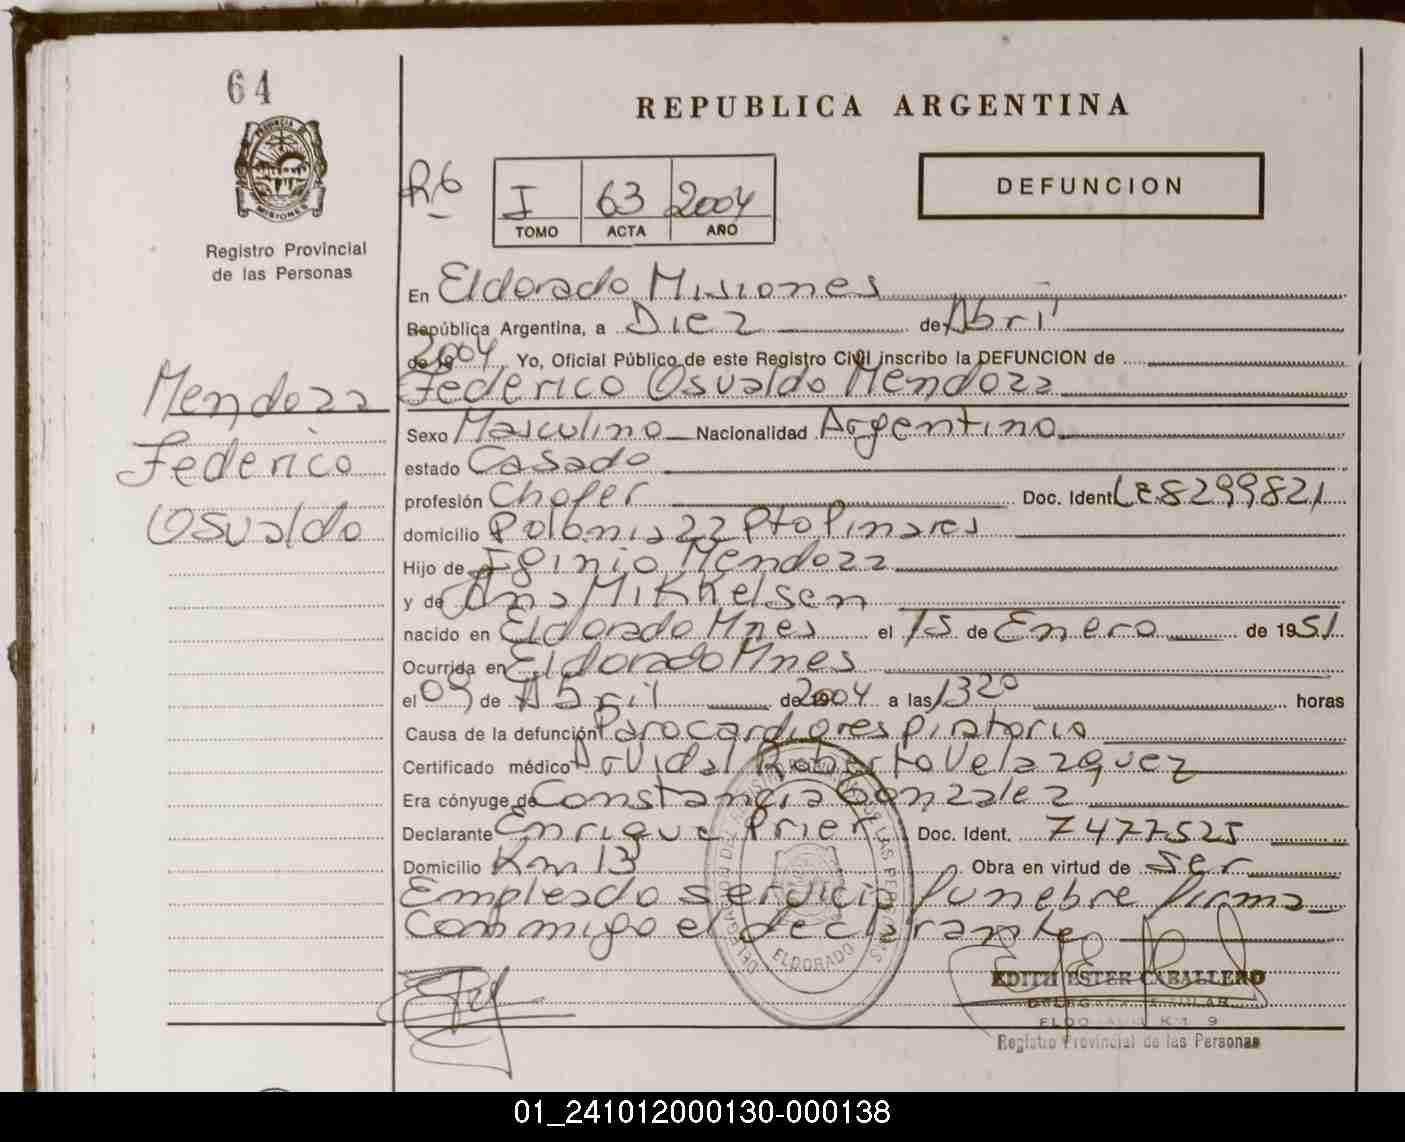 64
PROVINCIA DE
MISIONES
Registro Provincial
de las Personas
Mendoza
Federico
Osvaldo
REPUBLICA ARGENTINA
R6
I 63 2004
TOMO ACTA AÑO
DEFUNCION
En Eldorado Misiones
República Argentina, a Diez de Abril
2004 Yo, Oficial Público de este Registro Civil inscribo la DEFUNCION de
Federico Osvaldo Mendoza
Sexo Masculino Nacionalidad Argentino
estado Casado
profesión Chofer Doc. Ident LE8299821
domicilio Polonia 22 Pto Pinares
Hijo de Iginio Mendoza
y de Ana Mikkelsen
nacido en Eldorado Mnes el 15 de Enero de 1951
Ocurrida en Eldorado Mnes
el 09 de Abril de 2004 a las 1320 horas
Causa de la defunción Parocardiorespiratorio
Certificado médico Dr Vidal Roberto Velazquez
Era cónyuge de Constancia Gonzalez
Declarante Enrique Prier Doc. Ident. 7477525
Domicilio Km 13 Obra en virtud de ser
Empleado servicio funebre firma
Conmigo el declarante
ELDORADO
EDITH ESTER CABALLERO
KM 9
Registro Provincial de las Personas
01_241012000130-000138